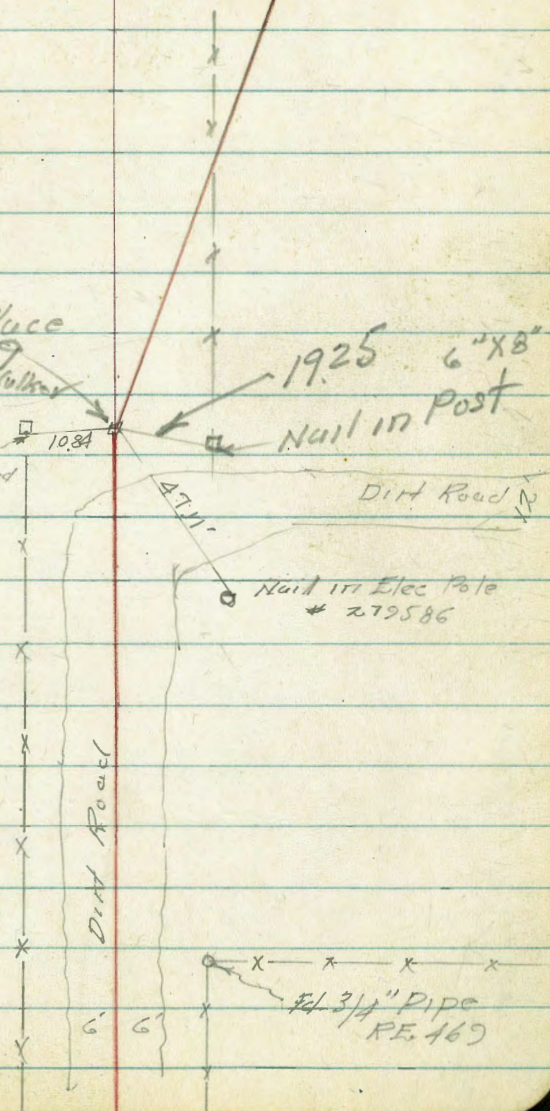 19.25
6"X8"
Nail in Post
10.84
Dirt Road
12'
47.11'
Nail in Elec Pole
# 279586
Dirt Road
6' 6'
Fd. 3/4" Pipe
R.E. 469